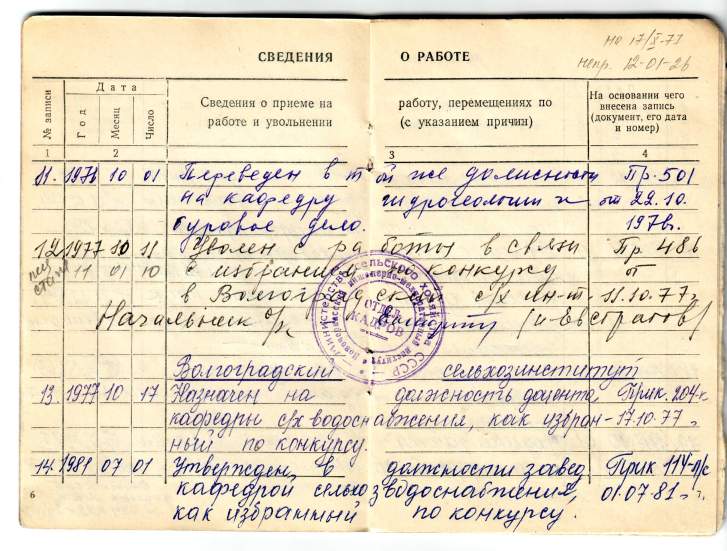 но 17/X-73
непр. 12-01-26
СВЕДЕНИЯ О РАБОТЕ
№ записи
Дата
Год
Месяц
Число
Сведения о приеме на работу, перемещениях по
работе и увольнении (с указанием причин)
На основании чего
внесена запись
(документ, его дата
и номер)
1 2 3 4
11. 1976 10 01 Переведен в той же должности Пр. 501
на кафедру гидрогеологии и от 22.10.
буровое дело. 1976г.
12 1977 10 11 Уволен с работы в связи Пр. 486
11 01 10 с избранием по конкурсу от
в Волгоградский с/х ин-т 11.10.77г.
Начальник о/к
МИНИСТЕРСТВО СЕЛЬСКОГО ХОЗЯЙСТВА СССР
ОТДЕЛ
КАДРОВ
Волгоградский сельхозинститут
13. 1977 10 17 Назначен на должность доцента Прик. 204-к
кафедры с/х водоснабжения, как избран- 17.10.77г.
ный по конкурсу.
14. 1981 07 01 Утвержден в должности завед. Прик 114-л/с
кафедрой сельхозводоснабжения, 01.07.81г.
как избранный по конкурсу.
6